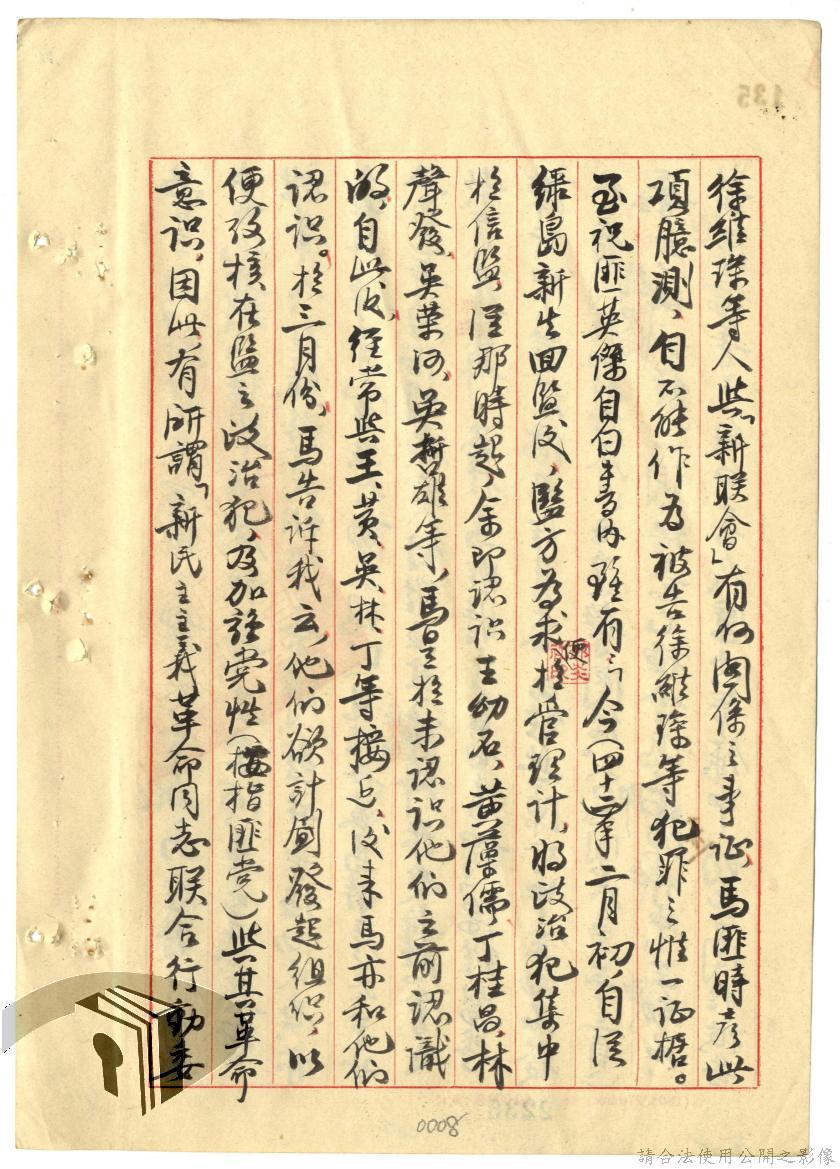 徐維琛等人與「新联會」有何関係之事证,馬匪時彥此
項臆測,自不能作为被告徐維琛等犯罪之惟一证據。
至祝匪英傑自白書內雖有:「今(四十二)年二月初,自從
綠島新生回监後,监方为求便於管理計,將政治犯集中
於信监,從那時起,余即认识王幼石、黄藻儒、丁桂昌、林
聲發、吳荣河、吳哲雄等,馬是於未认识他们之前认識
的,自此後,经常與王、黄、吳、林、丁等接近,後来馬亦和他们
认识。於三月份,馬告诉我云,他们欲計劃發起组织,以
便考核在监之政治犯,及加強党性(按指匪党)與其革命
意识,因此,有所謂「新民主主義革命同志联合行動委
135
8000
請合法使用公開之影像